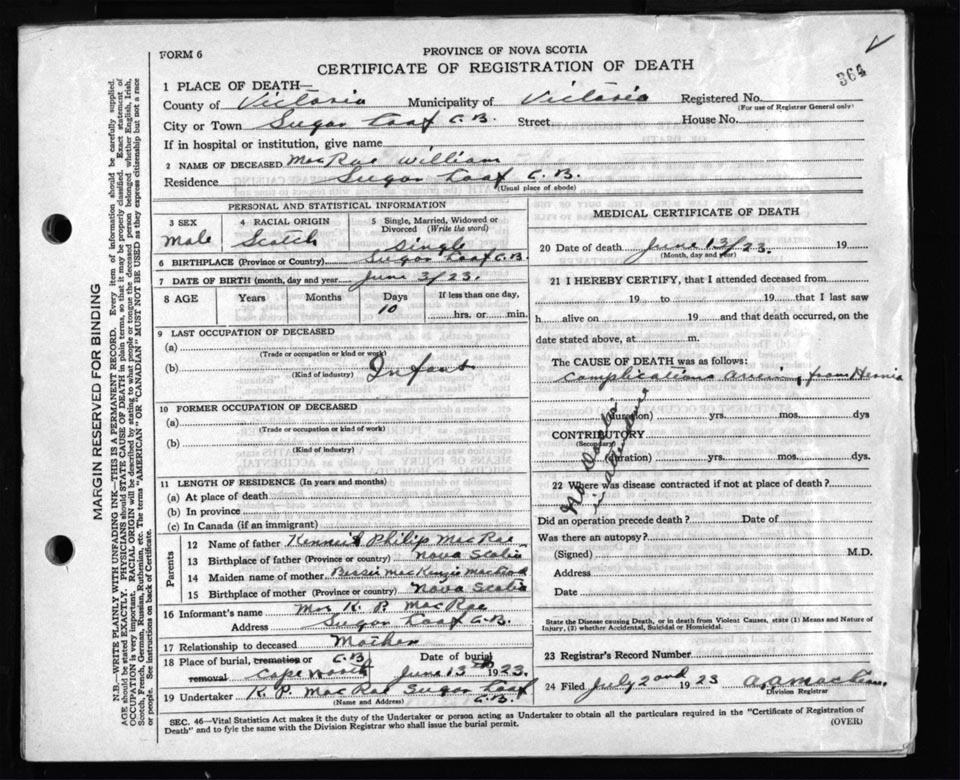 FORM 6
PROVINCE OF NOVA SCOTIA
CERTIFICATE OF REGISTRATION OF DEATH
364
MARGIN RESERVED FOR BINDING
N.B.—WRITE PLAINLY WITH UNFADING INK—THIS IS A PERMANENT RECORD. Every item of information should be carefully supplied.
AGE should be stated EXACTLY. PHYSICIANS should STATE CAUSE OF DEATH in plain terms, so that it may be properly classified. Exact statement of
OCCUPATION is very important. RACIAL ORIGIN will be described by stating to what people or tongue the deceased person belonged whether English, Irish,
Scotch, French, German, Russian, Ruthenian, etc. The terms "AMERICAN" OR "CANADIAN" MUST NOT BE USED as they express citizenship but not a race
or people. See instructions on back of Certificate.
1 PLACE OF DEATH—
County of Victoria Municipality of Victoria Registered No.
(For use of Registrar General only)
City or Town Sugar Loaf C.B. Street House No.
If in hospital or institution, give name
2 NAME OF DECEASED MacRae William
Residence Sugar Loaf C.B.
(Usual place of abode)
PERSONAL AND STATISTICAL INFORMATION
3 SEX 4 RACIAL ORIGIN 5 Single, Married, Widowed or
Divorced (Write the word)
Male Scotch Single
6 BIRTHPLACE (Province or Country) Sugar Loaf C.B.
7 DATE OF BIRTH (month, day and year) June 3/23.
8 AGE Years Months Days If less than one day,
10 hrs. or min.
9 LAST OCCUPATION OF DECEASED
(a)
(Trade or occupation or kind or work)
(b) Infant
(Kind of industry)
10 FORMER OCCUPATION OF DECEASED
(a)
(Trade or occupation or kind of work)
(b)
(Kind of industry)
11 LENGTH OF RESIDENCE (In years and months)
(a) At place of death
(b) In province
(c) In Canada (if an immigrant)
Parents
12 Name of father Kenneth Philip MacRae
13 Birthplace of father (Province or country) Nova Scotia
14 Maiden name of mother MacKenzie
15 Birthplace of mother (Province or country) Nova Scotia
16 Informant's name Mrs K. P. MacRae
Address Sugar Loaf C.B.
17 Relationship to deceased Mother
18 Place of burial, cremation or C.B. Date of burial
removal Cape North June 15th 1923.
19 Undertaker K. P. MacRae Sugar Loaf
(Name and Address) C.B.
MEDICAL CERTIFICATE OF DEATH
20 Date of death June 13/23. 19
(Month, day and year)
21 I HEREBY CERTIFY, that I attended deceased from
19 to 19 that I last saw
h alive on 19 and that death occurred, on the
date stated above, at m.
The CAUSE OF DEATH was as follows:
Complications arising from Hernia
(duration) yrs. mos. dys
CONTRIBUTORY
(Secondary)
(duration) yrs. mos. dys
No Doctor
in attendance
22 Where was disease contracted if not at place of death?
Did an operation precede death? Date of
Was there an autopsy?
(Signed) M.D.
Address
Date
State the Disease causing Death, or in death from Violent Causes, state (1) Means and Nature of
Injury, (2) whether Accidental, Suicidal or Homicidal.
23 Registrar's Record Number
24 Filed July 2nd 1923
Division Registrar
SEC. 46—Vital Statistics Act makes it the duty of the Undertaker or person acting as Undertaker to obtain all the particulars required in the "Certificate of Registration of
Death" and to fyle the same with the Division Registrar who shall issue the burial permit.
(OVER)